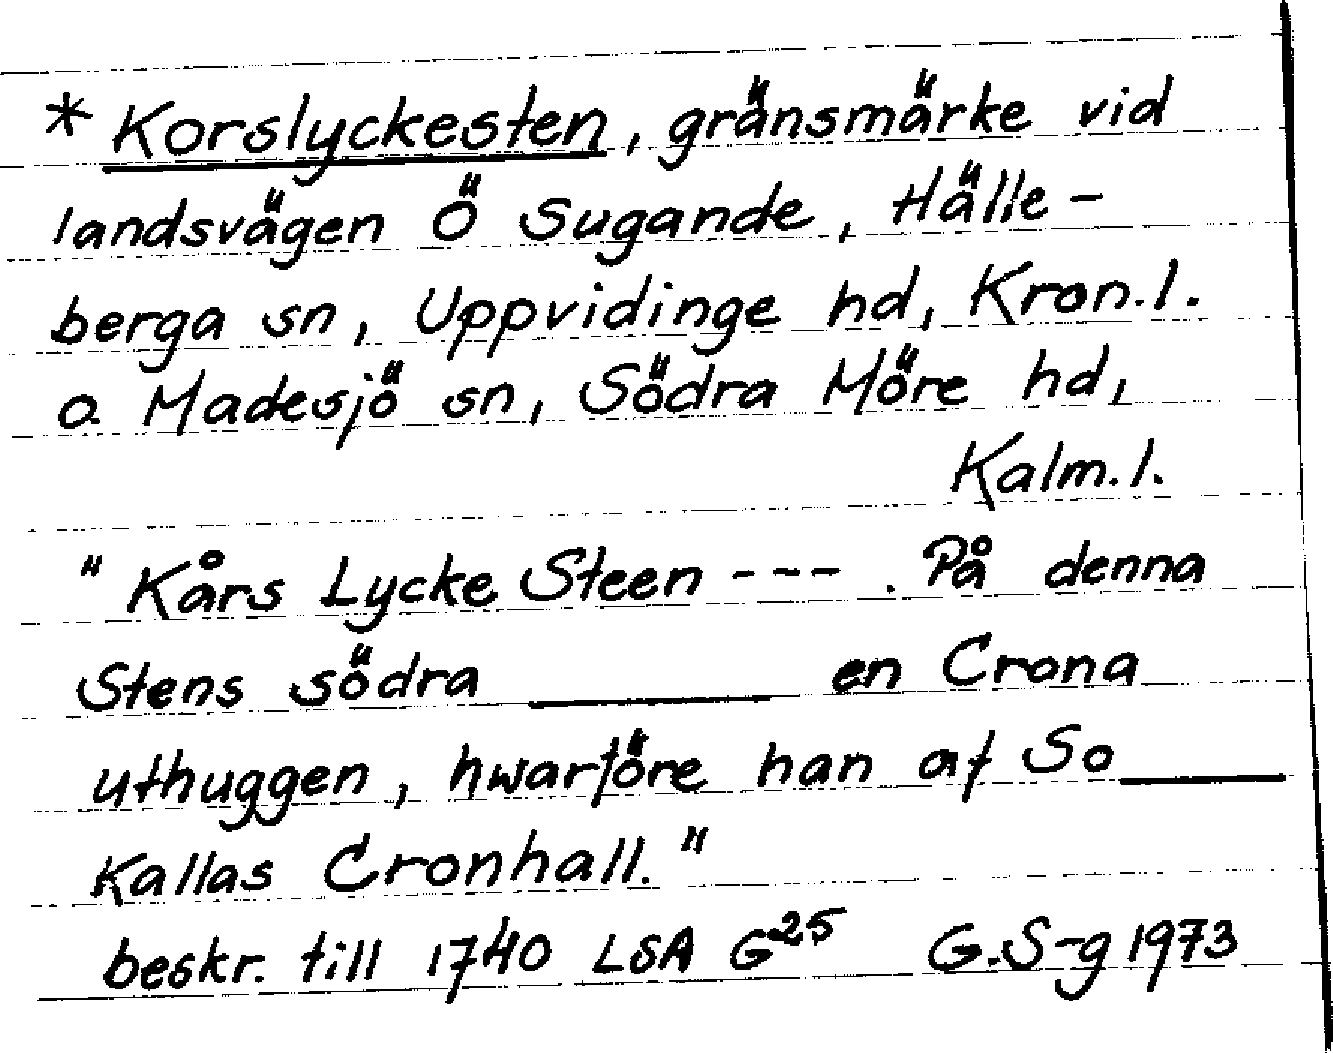 * Korslyckesten, gränsmärke vid
landsvägen Ö Sugande, Hälle-
berga sn, Uppvidinge hd, Kron.l.
o. Madesjö sn, Södra Möre hd,
Kalm.l.
"Kårs Lycke Steen ---. På denna
Stens södra ______ en Crona
uthuggen, hwarföre han af So____
Kallas Cronhall."
beskr. till 1740 LSA G25 G.S-g 1973